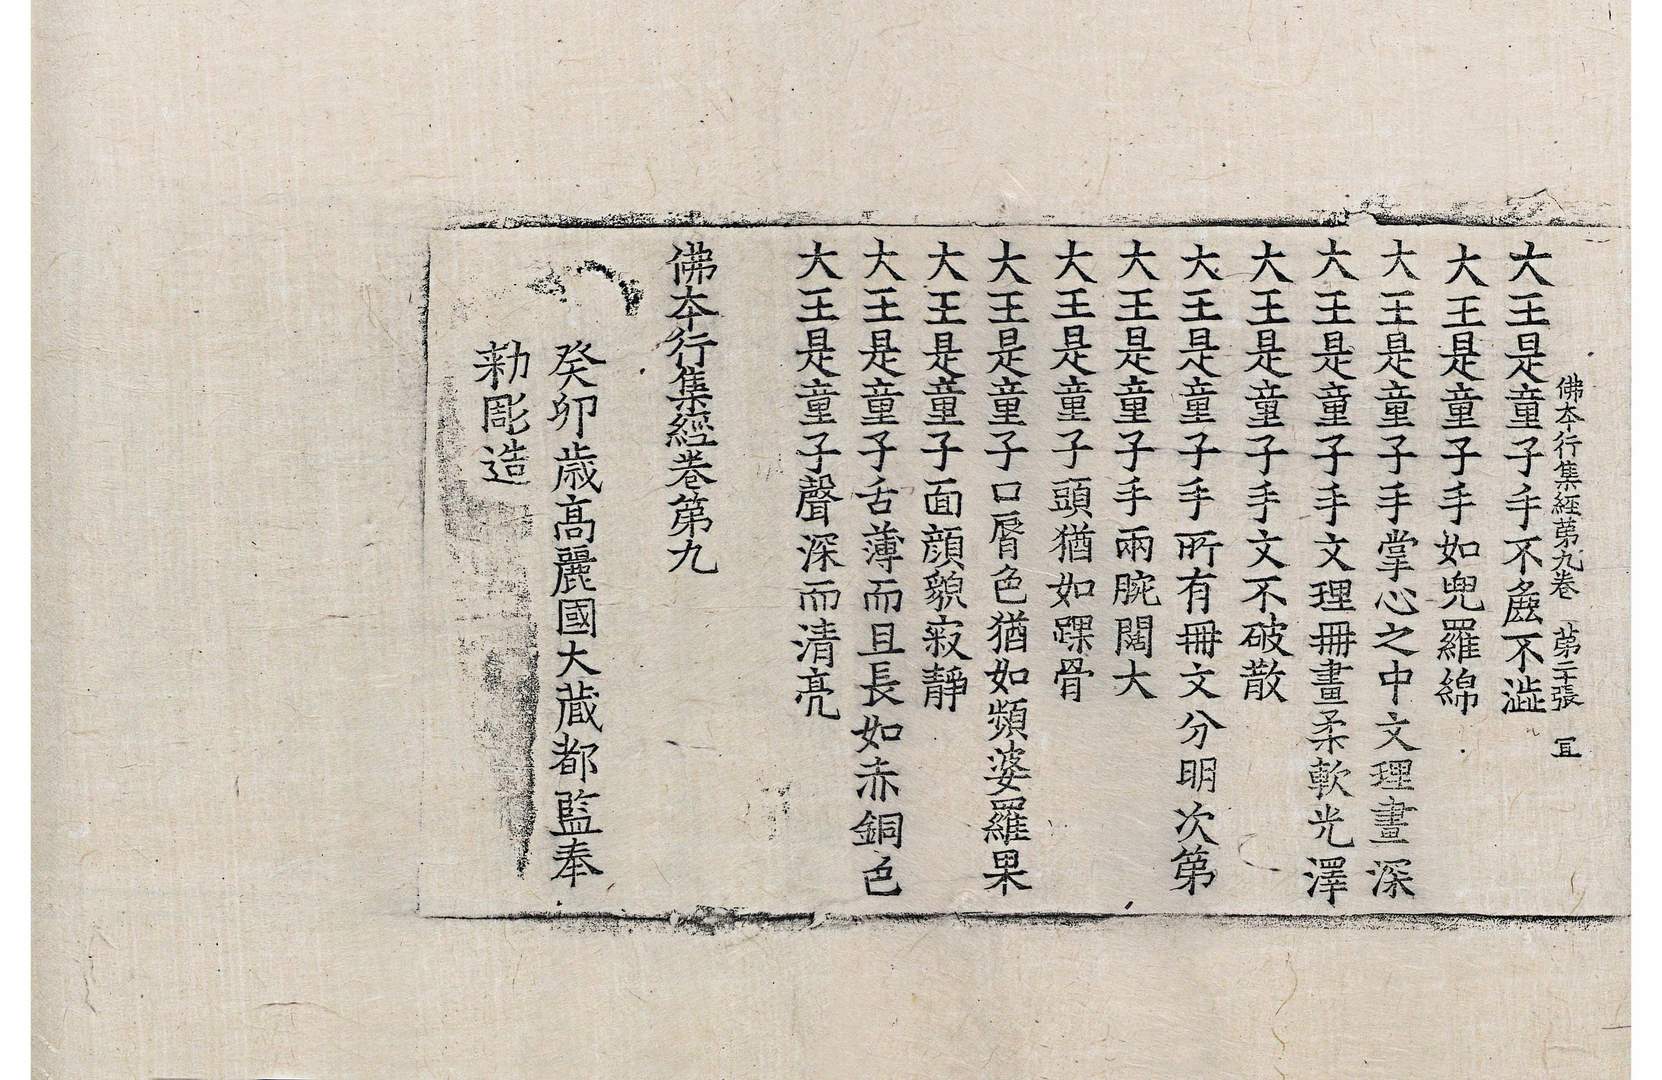 佛本行集經第九卷 第二十張 冝
大王是童子手不麁不澁
大王是童子手如兜羅綿
大王是童子手掌心之中文理畫深
大王是童子手文理冊畫柔軟光澤
大王是童子手文不破散
大王是童子手所有冊文分明次第
大王是童子手兩腕闊大
大王是童子頭猶如踝骨
大王是童子口脣色猶如頻婆羅果
大王是童子面顔貌寂靜
大王是童子舌薄而且長如赤銅色
大王是童子聲深而清亮
佛本行集經卷第九
癸卯歳高麗國大藏都監奉
勑彫造